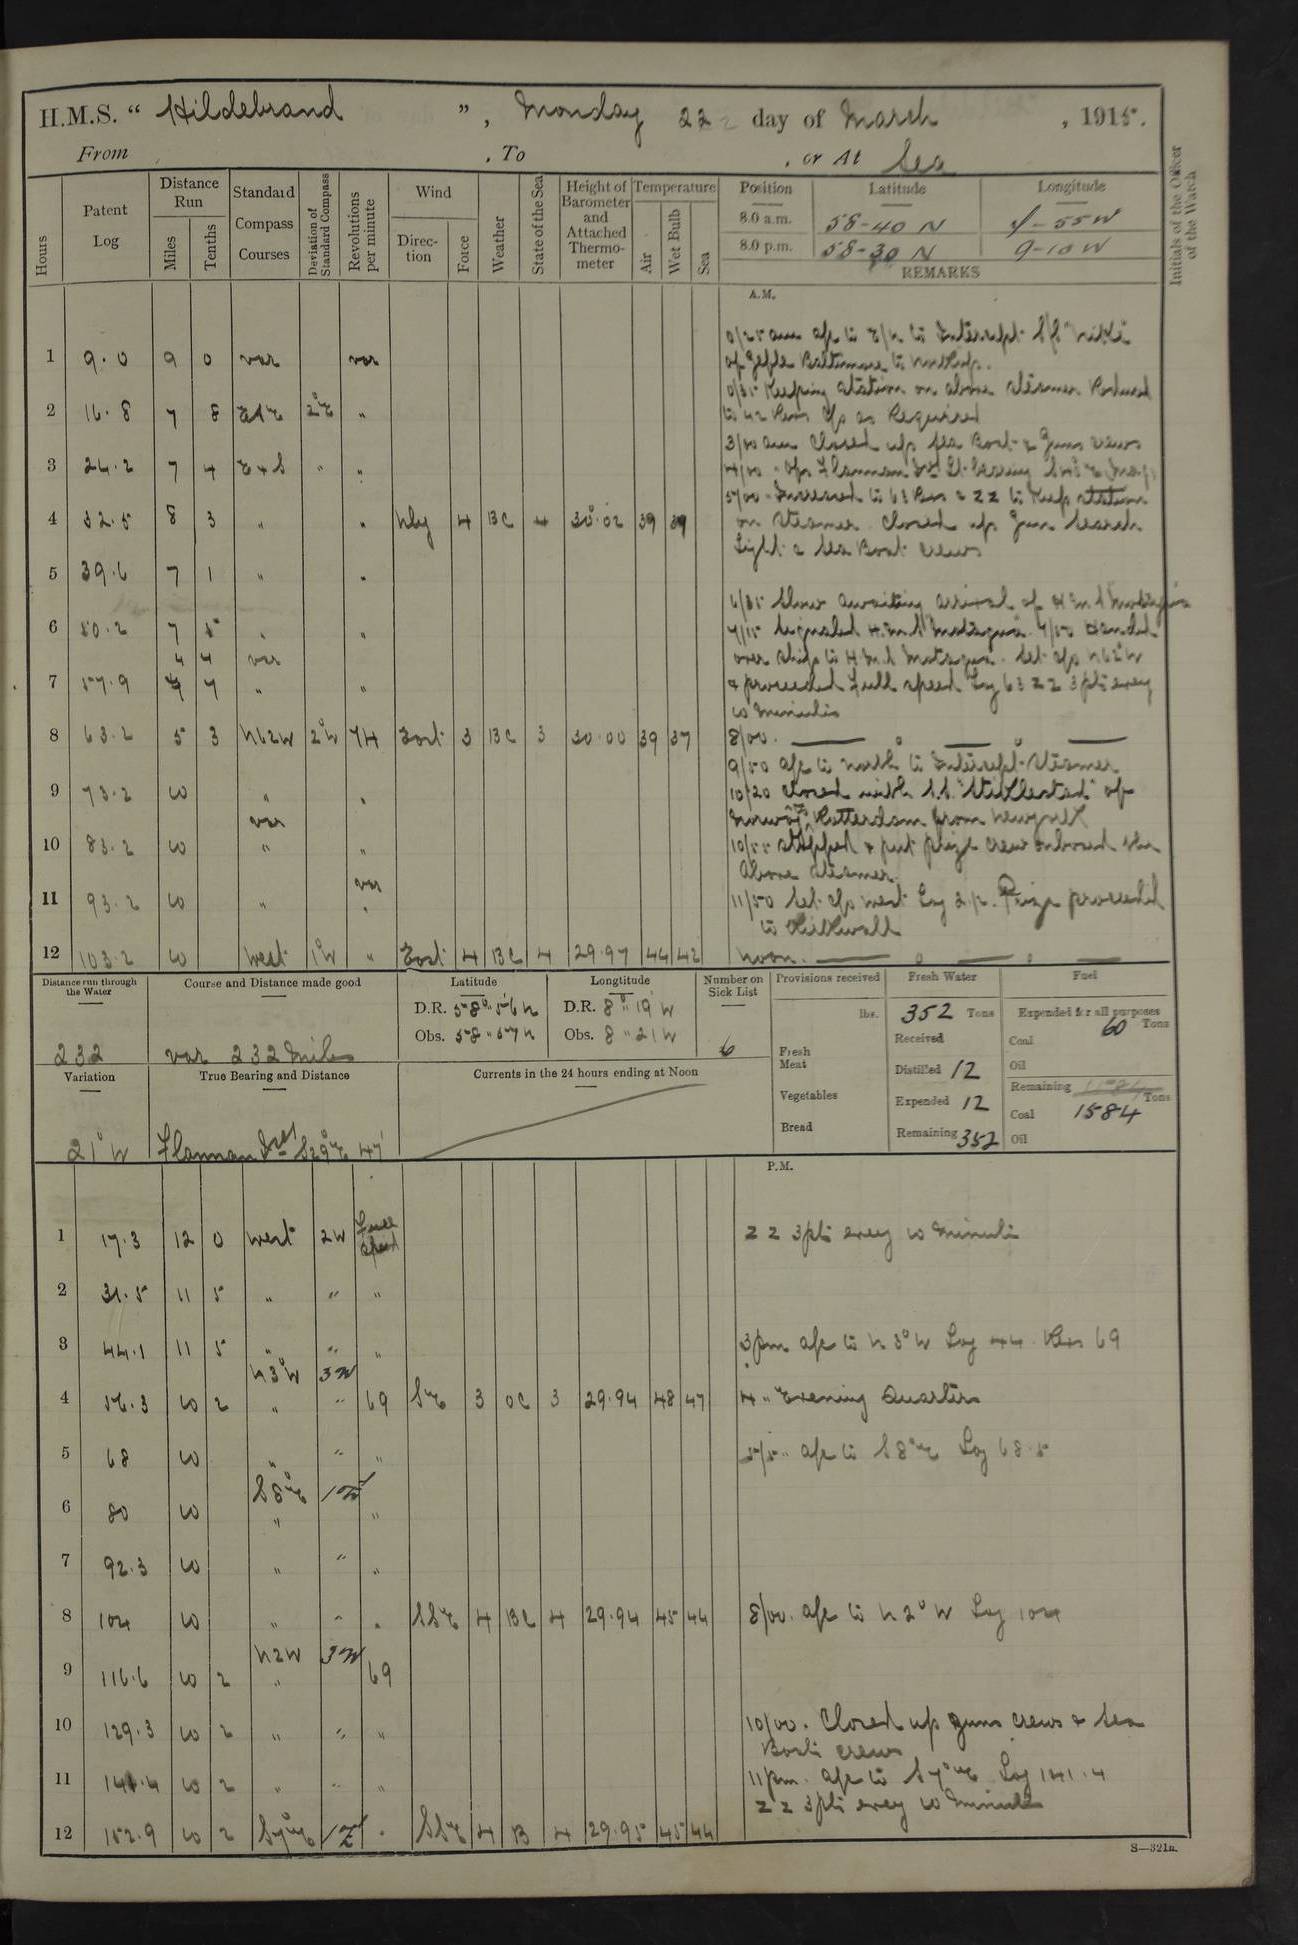 H.M.S. “ Hildebrand ”, Monday 22 day of March , 1915.
From , To , or At Sea
Hours
Patent Log
Distance Run
Miles
Tenths
Standard Compass Courses
Deviation of Standard Compass
Revolutions per minute
Wind
Direc-tion
Force
Weather
State of the Sea
Height of Barometer and Attached Thermo-meter
Temperature
Air
Wet Bulb
Sea
Position Latitude Longitude
8.0 a.m. 58-40 N -55W
8.0 p.m. 58-30 N 9-10 W
REMARKS
Initials of the Officer of the Watch
A.M.
0/25 am a/c to E/N to Intercept S/S
of Gefle Baltimore to
1 9.0 9 0 var var
0/35 Keeping station on above steamer Reduced
to 42 Revs c/s as Required
2 16.8 7 8 2°E "
3/00 am Closed up Sea Boat & Guns crews
3 24.2 7 4 E+S " "
4/00 Flannan Is Lt bearing
5/00 Increased to 63 Revs & ZZ to Keep station
4 32.5 8 3 " " Nly 4 BC 4 30.02 39 39
on Steamer. Closed up Gun Search
Light & Sea Boat crews
5 39.6 7 1 " "
6/35 Slow awaiting arrival of H.M.S
6 50.2 7 5 " "
7/15 Signaled H.M.S 7/50 Handed
4 4 var
over ship to H.M.S Set c/s N62°W
7 57.9 7 " "
& proceeded Full speed Log 63 ZZ 3 pts every
10 Minutes
8 63.2 5 3 N62W 2°W 74 East 3 BC 3 30.00 39 37
8/00.
9/50 a/c to North to Intercept Steamer
9 73.2 10 " "
10/20 Closed with S.S. "Stiklestad" of
var
Norway, Rotterdam from
10 83.2 10 " "
10/55 Stopped & put prize crew onboard the
Above Steamer
var
11 93.2 10 " "
11/50 Set c/s West Log 3/2. Prize proceeded
to Kirkwall
12 103.2 10 West 1°W " East 4 BC 4 29.97 44 42
Noon.
Distance run through the Water
232
Course and Distance made good
var 232 Miles
Latitude
D.R. 58° " 56 N
Obs. 58 " 57 N
Longtitude
D.R. 8° " 19' W
Obs. 8 " 21 W
Number on Sick List
6
Provisions received
lbs.
Fresh Meat
Vegetables
Bread
Fresh Water
352 Tons
Received
Distilled 12
Expended 12
Remaining 352
Fuel
Expended for all purposes
Coal 60 Tons
Oil
Remaining Tons
Coal 1584
Oil
Variation
21°W
True Bearing and Distance
Flannan Isles S29°E 47'
Currents in the 24 hours ending at Noon
P.M.
1 17.3 12 0 West 2W Full Speed
ZZ 3pts every 10 Minutes
2 31.5 11 5 " " "
3 44.1 11 5 " " "
3pm a/c to N 3°W Log 44. Revs 69
N3°W 3W
4 56.3 10 2 " " 69 SE 3 OC 3 29.94 48 47
4 " Evening Quarters
5 68 10 " " "
5/5 " a/c to S8°E Log 68.5
S8°E
6 80 10 " "
7 92.3 10 " " "
8 104 10 " " " SSE 4 BC 4 29.94 45 44
8/00. a/c to N 2°W Log 104
N2W 3W
9 116.6 10 2 " 69
10 129.3 10 2 " " "
10/00. Closed up guns crews & Sea
Boats crews
11 141.4 10 2 " " "
11pm. a/c to S7°E Log 141.4
ZZ 3pts every 10 Minutes
12 152.9 10 2 S7°E 1E " SSE 4 B 4 29.95 45 44
S—321a.